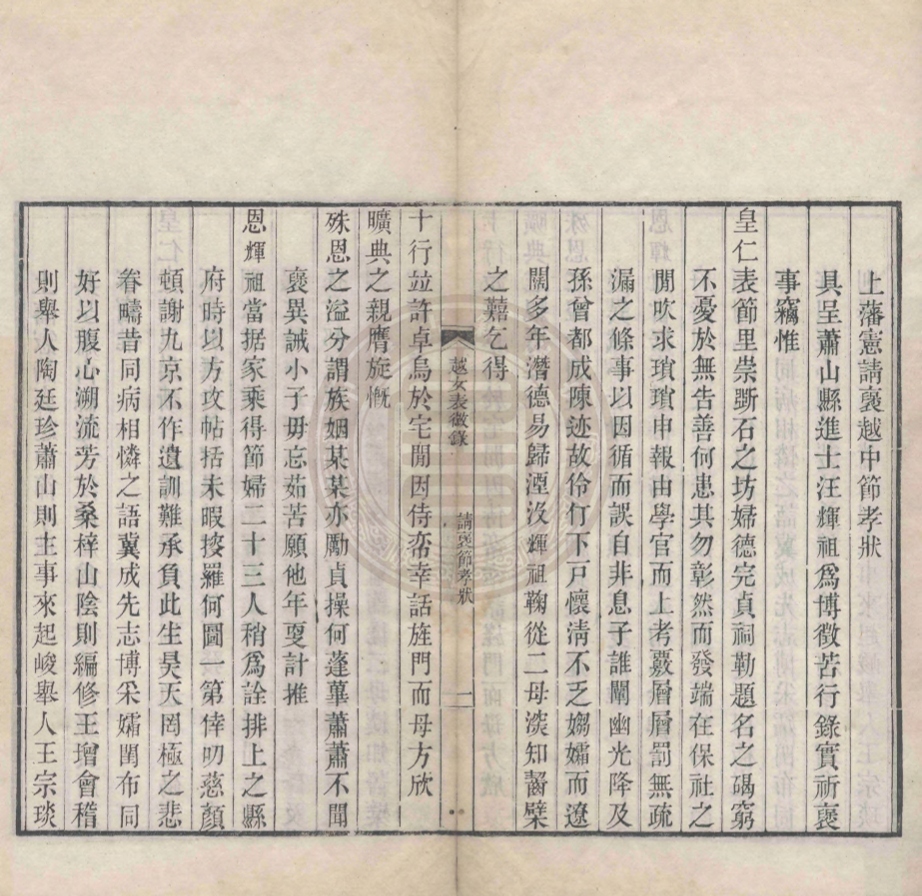 上藩憲請襃越中節孝狀
具呈蕭山縣進士汪輝祖爲博徵苦行錄實祈襃
事竊惟
皇仁表節里崇斲石之坊婦德完貞祠勒題名之碣窮
不憂於無告善何患其勿彰然而發端在保社之
閒吹求瑣瑣申報由學官而上考覈層層罰無疏
漏之條事以因循而誤自非息子誰闡幽光降及
孫曾都成陳迹故伶仃下戸懷淸不乏嫋孀而遼
闊多年潛德易歸湮沒輝祖鞠從二母淡知齧檗
之囏乞得
越女表徵錄
請襃節孝狀
一
十行竝許卓烏於宅閒因侍帟幸話旌門而母方欣
曠典之親膺旋慨
殊恩之溢分謂族姻某某亦勵貞操何蓬蓽蕭蕭不聞
襃異誡小子毋忘茹苦願他年更計推
恩輝祖當据家乘得節婦二十三人稍爲詮排上之縣
府時以方攻帖括未暇按羅何圖一第倖叨慈顏
頓謝九京不作遺訓難承負此生昊天罔極之悲
眷疇昔同病相憐之語冀成先志博采孀閨布同
好以腹心溯流芳於桑梓山陰則編修王增會稽
則舉人陶廷珍蕭山則主事來起峻舉人王宗琰